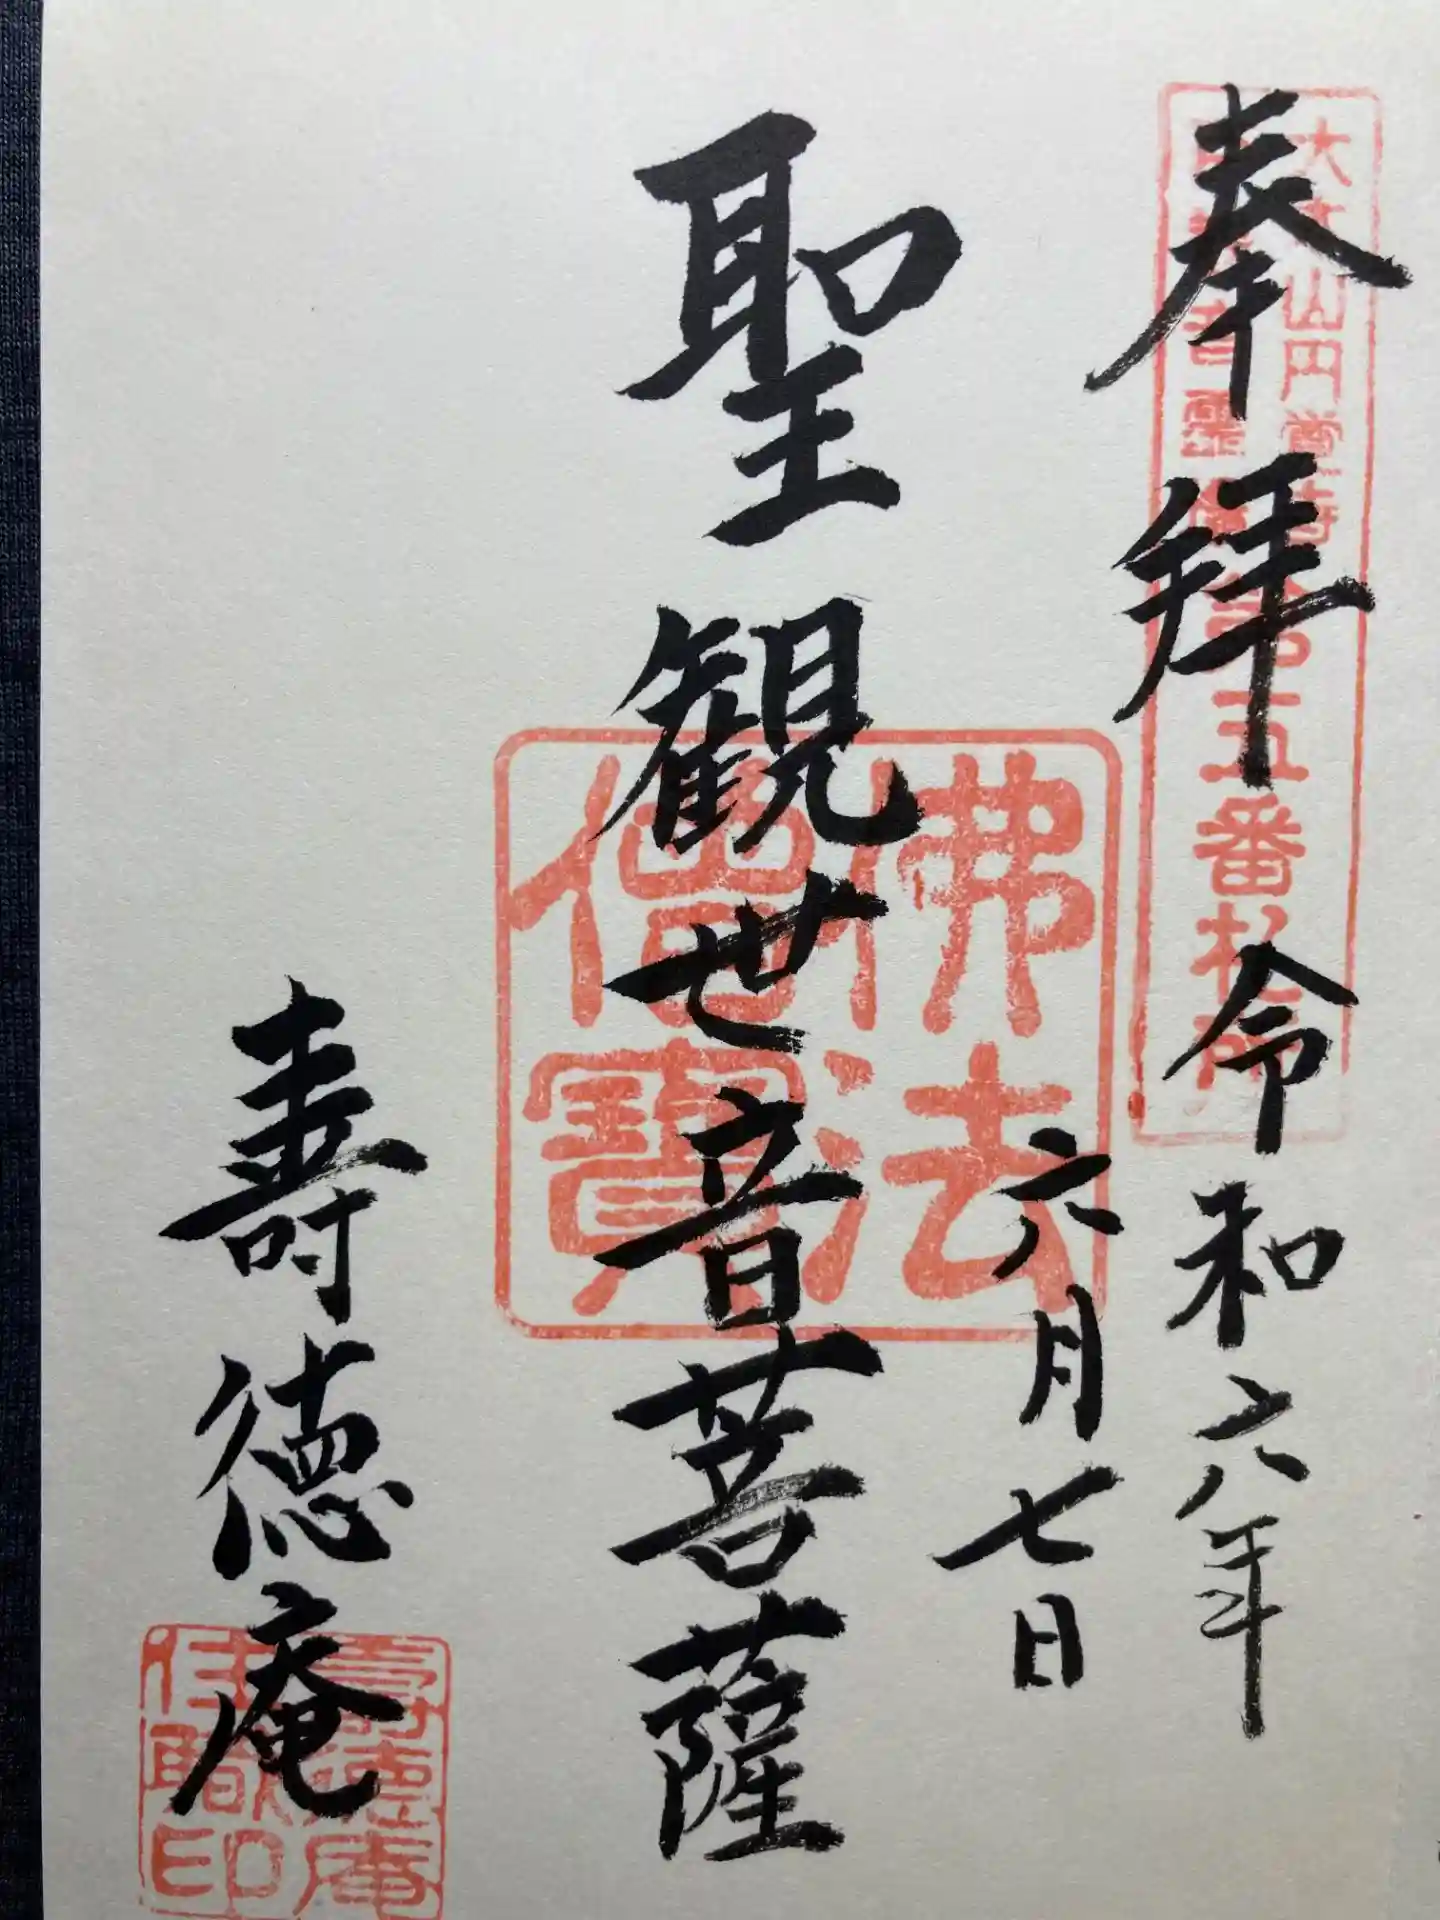 奉拝
令和六年
六月七日
聖観世音菩薩
壽徳庵
佛法
僧寳
第五番札所
壽徳庵
住職印